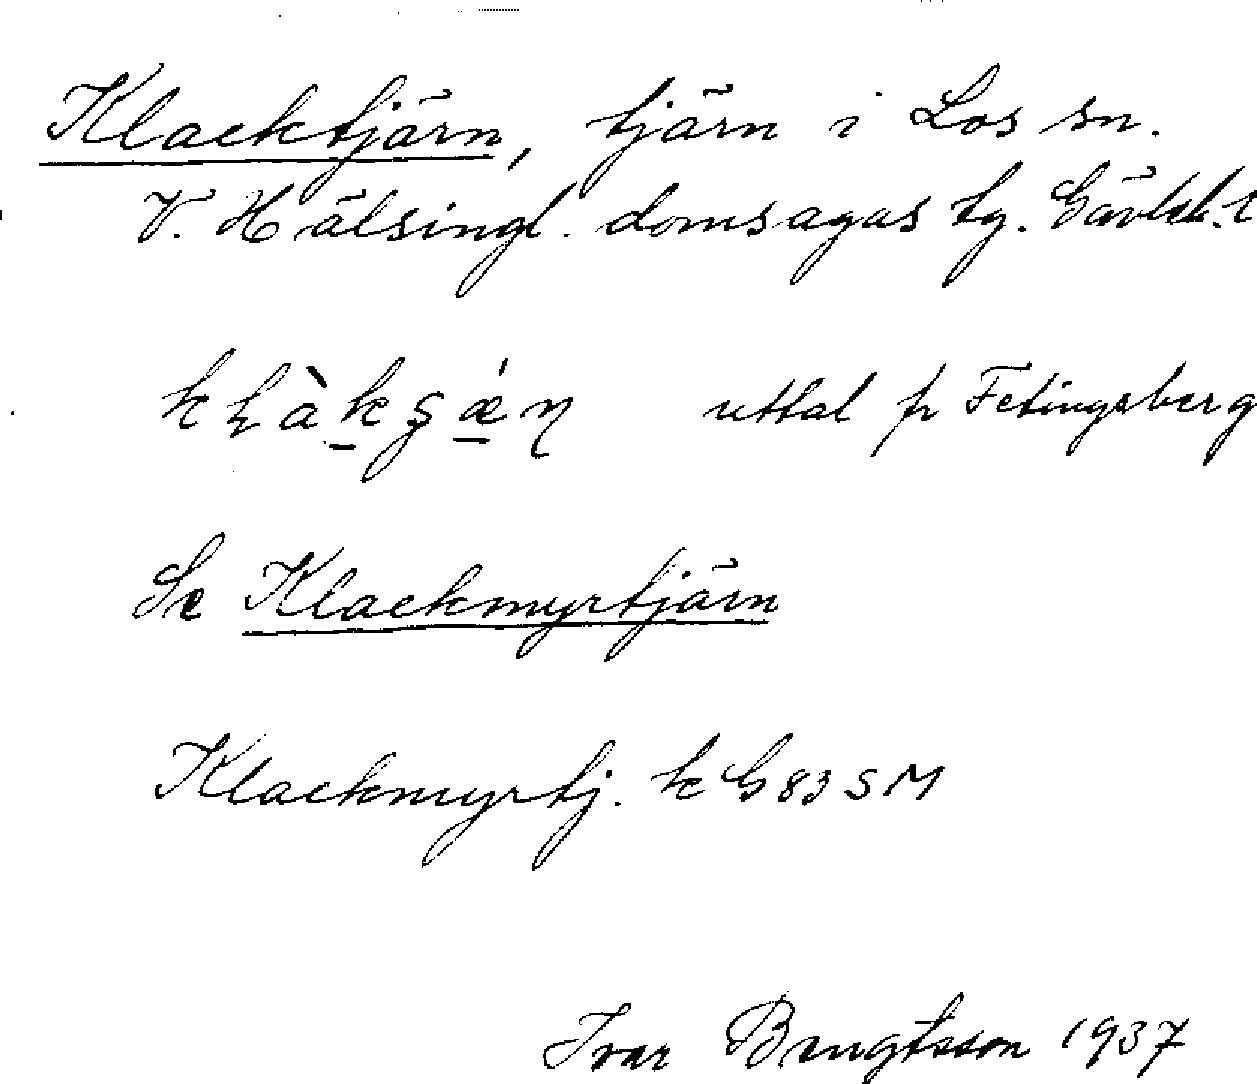 Klacktjärn, tjärn i Los sn.
V. Hälsingl. domsagas tg. Gävleb. l
uttal fr Tetingsberg
Se Klackmyrtjärn
Klackmyrtj. k G 83 S M
Ivar Bengtsson 1937